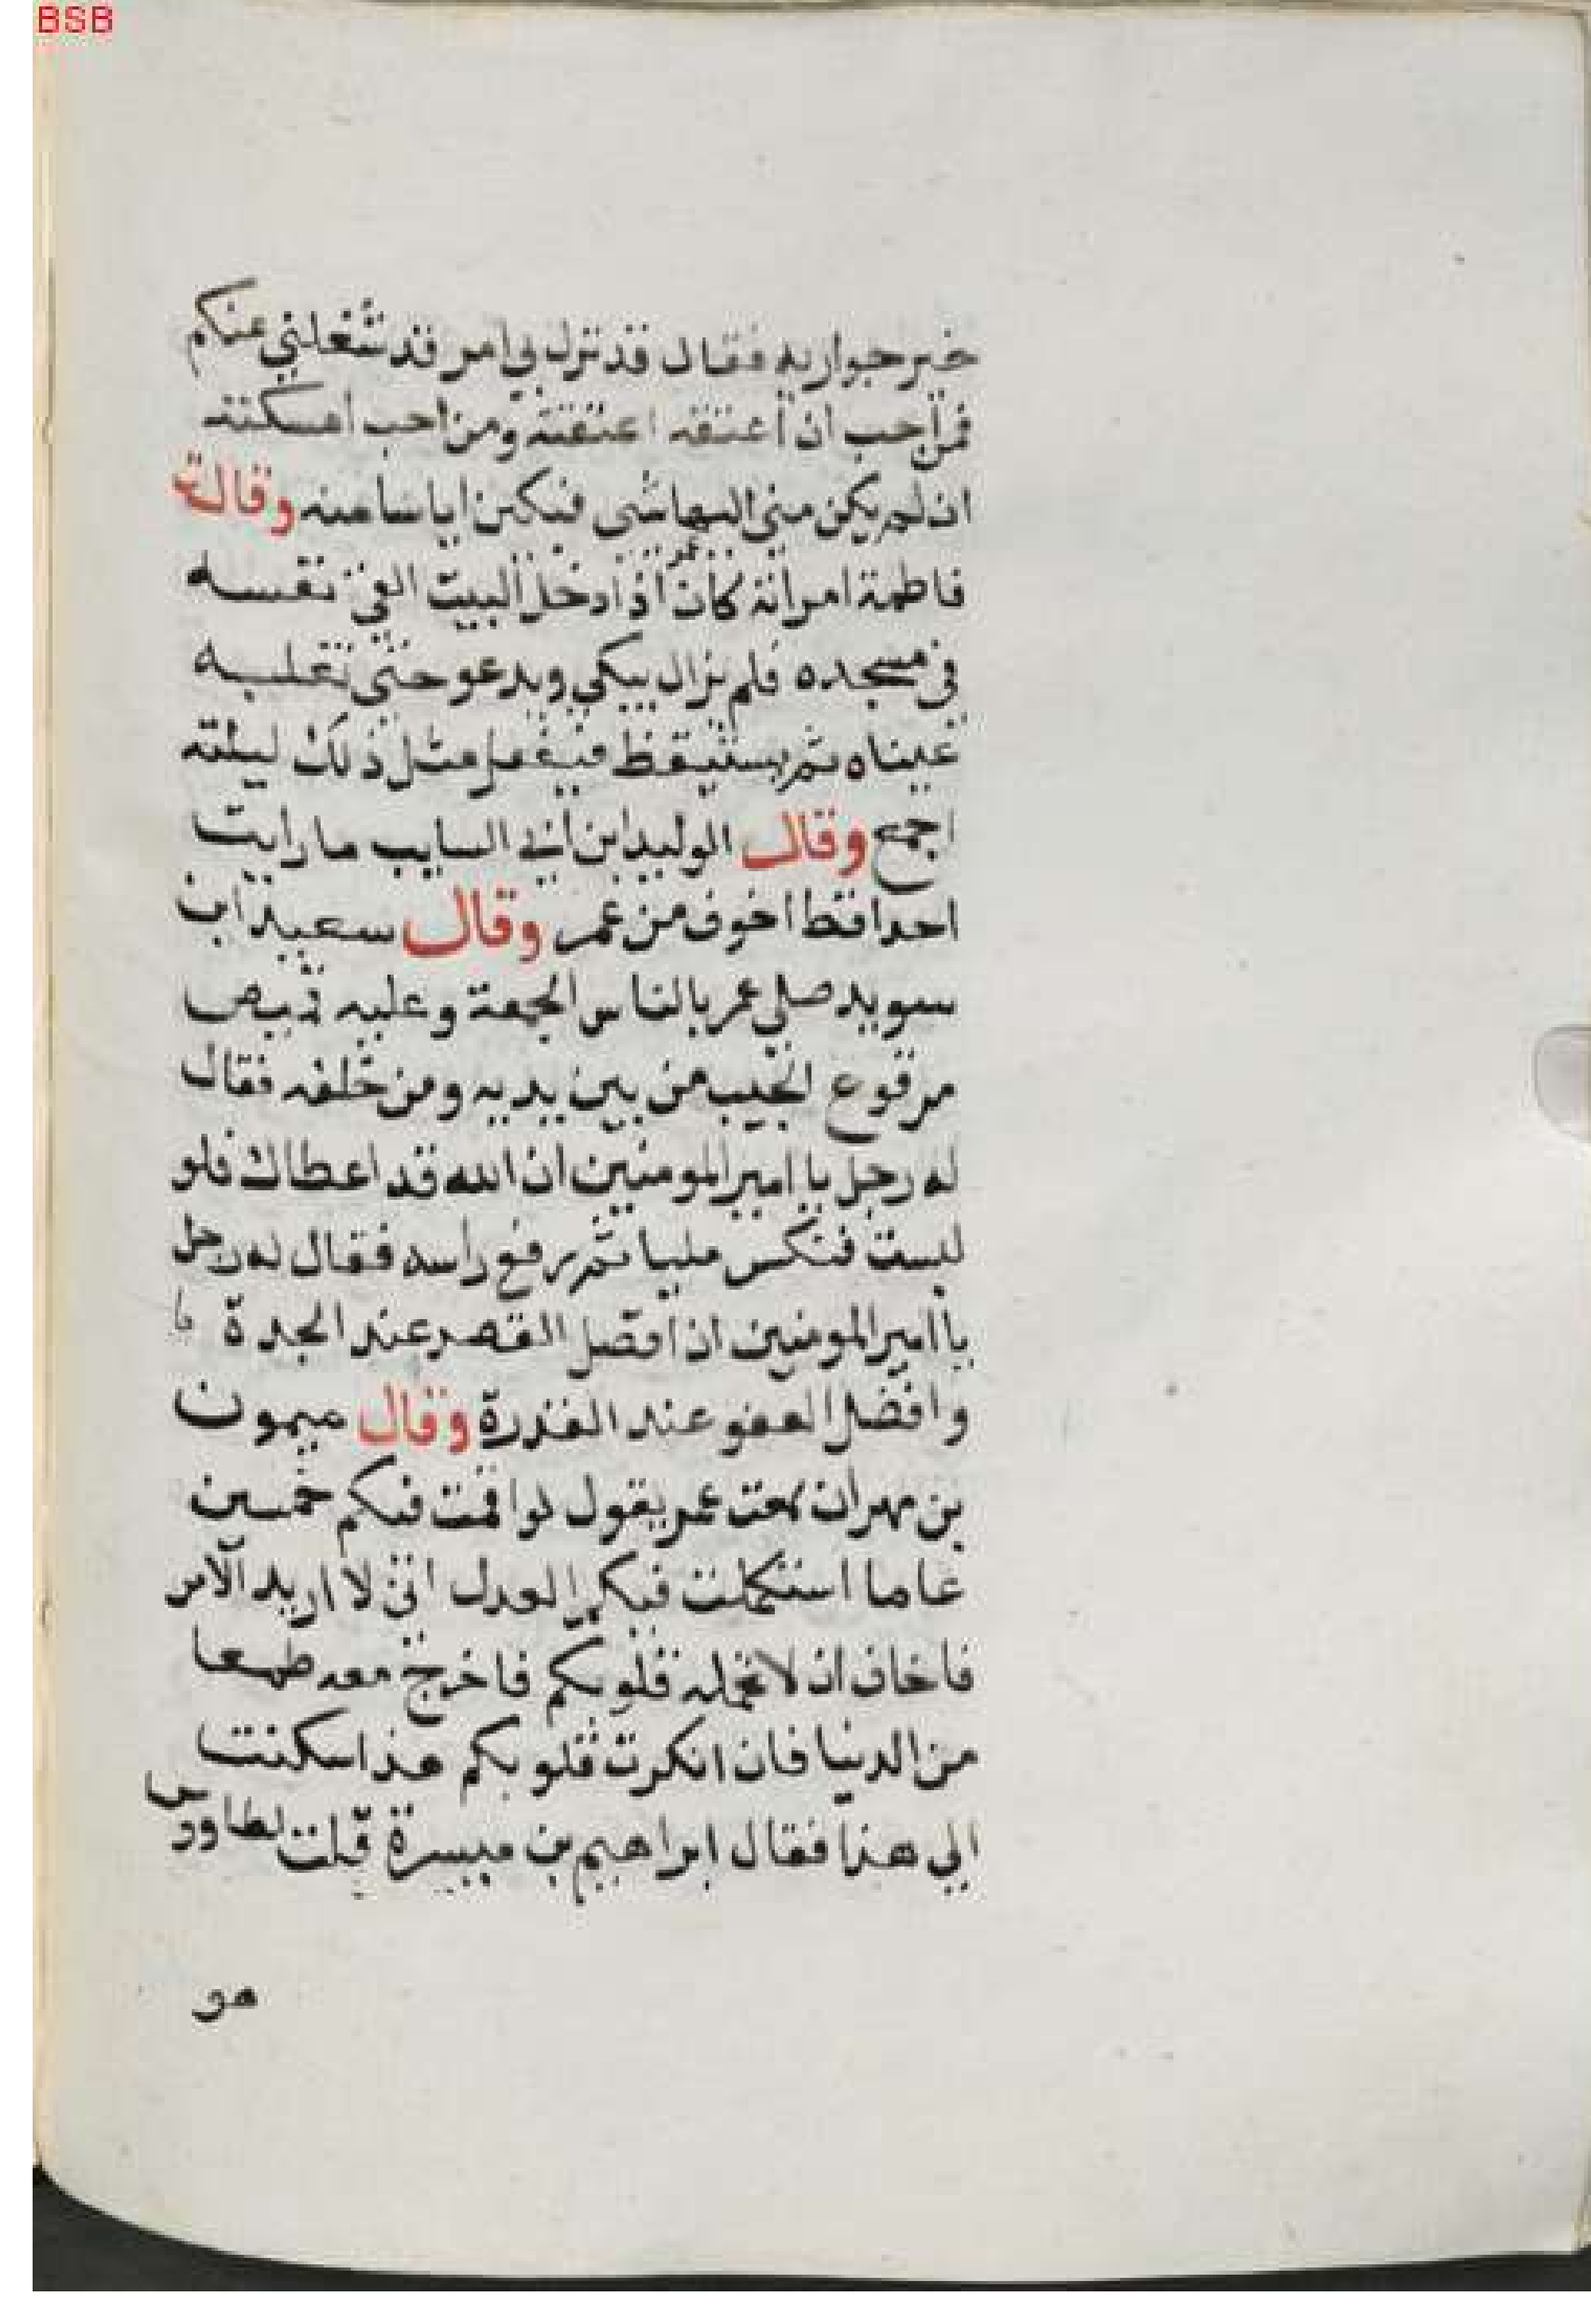 BSB
خير جواريه فقال قد نزل بي امر قد شغلني عنكم
فمن احب ان اعتقه اعتقته ومن احب امسكته
ان لم يكن مني اليها شي فبكين اياسا منه وقالت
فاطمة امراته كان عمر اذا دخل البيت القي نفسه
في مسجده فلم يزال يبكي ويدعو حتي تغلبه
عيناه ثم يستيقظ فيفعل مثل ذلك ليلته
اجمع وقال الوليد ابن ابي السايب ما رايت
احدا قط اخوف من عمر وقال سعيد ابن
سويد صلي عمر بالناس الجمعة وعليه قميص
مرقوع الجيب من بين يديه ومن خلفه فقال
له رجل يا امير المومنين ان الله قد اعطاك فلو
لبست فنكس مليا ثم رفع راسه فقال له رجل
يا امير المومنين ان افضل القصد عند الجدة
وافضل العفو عند القدرة وقال ميمون
بن مهران سمعت عمر يقول لو اقمت فيكم خمسين
عاما استكملت فيكم العدل اني لا اريد الامر
فاخاف ان لا تحمله قلوبكم فاخرج معه طمعا
من الدنيا فان انكرت قلوبكم هذا سكنت
الي هذا فقال ابراهيم بن ميسرة قلت لطاوس
هو